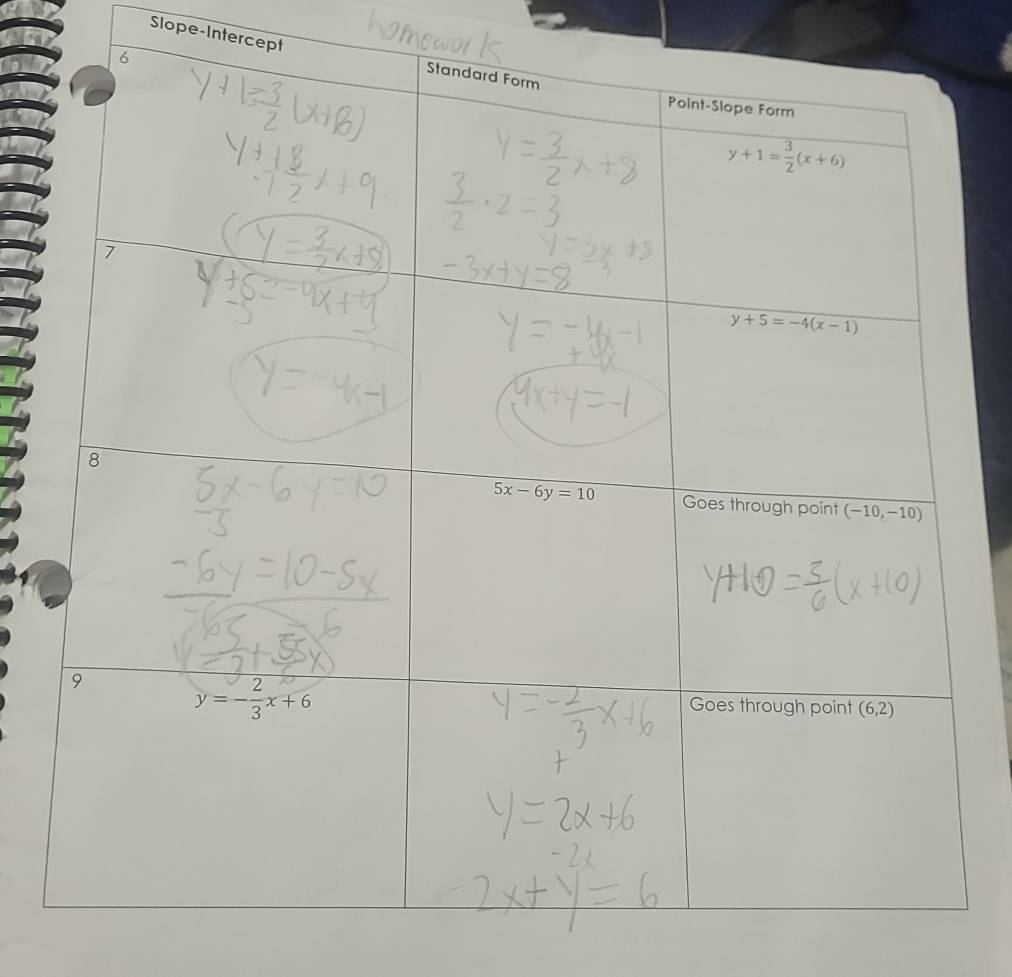 homework
Slope-Intercept
Standard Form
Point-Slope Form
6
y+1=3/2(x+8)
y = 3/2 x + 8
3/2 · 2 = 3
-3x+y=8
y + 1 = 3/2 (x + 6)
7
y = -4x-1
y = -4x-1
4x+y=-1
y + 5 = −4(x − 1)
8
5x-6y=10
-6y=10-5x
5x − 6y = 10
Goes through point (−10,−10)
y+10 = 5/6 (x+10)
9
y = −2/3 x + 6
y = -2/3 x+6
+
y = 2x+6
-2x
-2x+y=6
Goes through point (6,2)